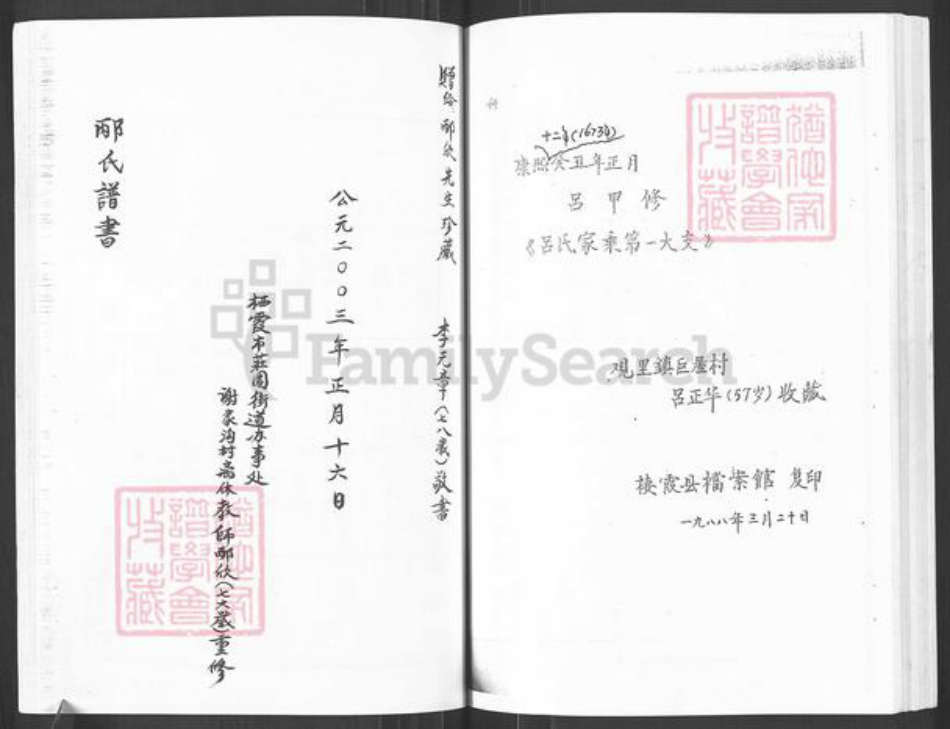 邴氏譜書
公元二〇〇三年正月十六日
栖霞市莊園街道办事处
謝家沟村离休教師邴欣(七六歲)重修
贈给 邴欣先生珍藏 李元章(七八歲)敬書
十二年(1673年)
康熙癸丑年正月
呂甲修
《呂氏家乘第一大支》
观里鎮巨屋村
呂正华(57岁)收藏
栖霞县檔案館 复印
一九八八年三月二十日
FamilySearch
譜學會
收藏